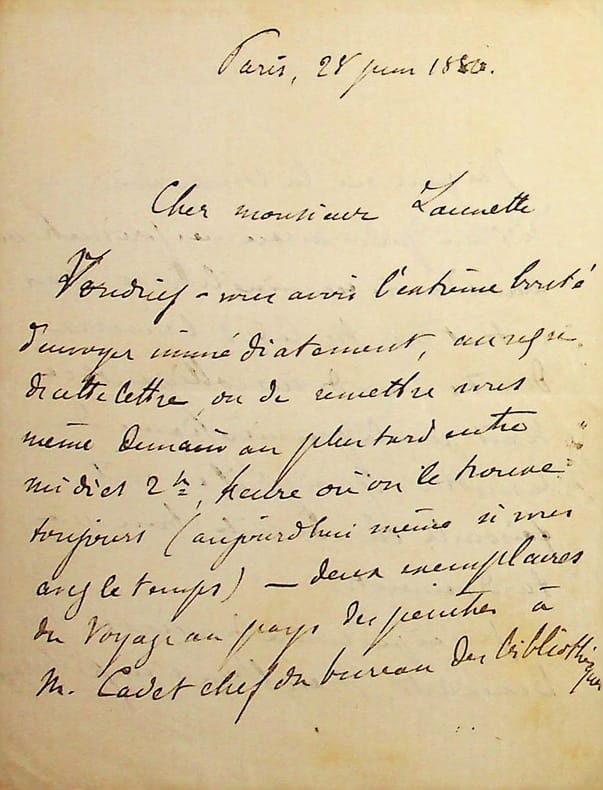 Paris, 28 juin 1880.
Cher monsieur Launette
Voudriez-vous avoir l'extrême bonté
d'envoyer immédiatement, au reçu
de cette lettre, ou de remettre vous
même demain au plus tard entre
midi et 2h, heure où on le trouve
toujours (aujourdhui même si vous
avez le temps) — deux exemplaires
du Voyage au pays des peintres à
M. Cadet chef du bureau des bibliothèques